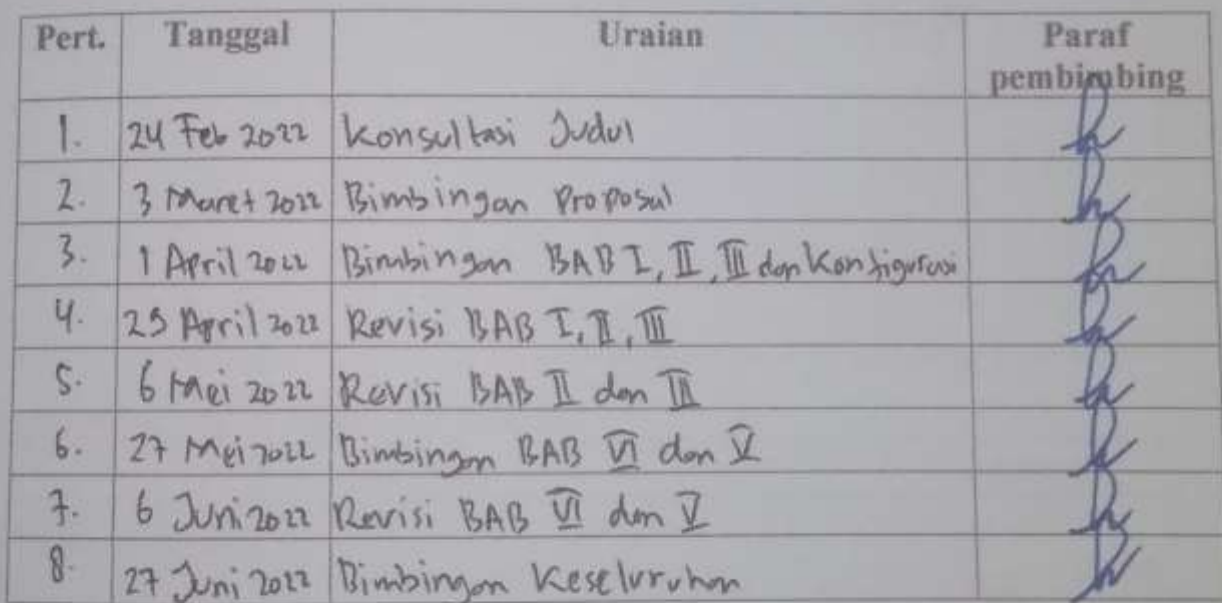 Pert. Tanggal Uraian Paraf pembimbing
1. 24 Feb 2022 Konsultasi Judul
2. 3 Maret 2022 Bimbingan Proposal
3. 1 April 2022 Bimbingan BAB I, II, III dan Konfigurasi
4. 25 April 2022 Revisi BAB I, II, III
5. 6 Mei 2022 Revisi BAB II dan III
6. 27 Mei 2022 Bimbingan BAB VI dan V
7. 6 Juni 2022 Revisi BAB VI dan V
8. 27 Juni 2022 Bimbingan Keseluruhan